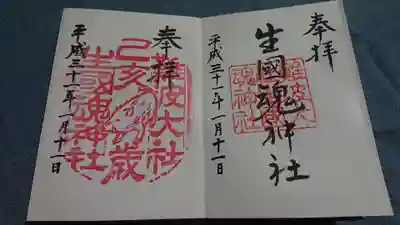 奉拝
難波大社
生國魂神社
平成三十一年一月十一日
奉拝
難波大社
己亥歳
生國魂神社
平成三十一年一月十一日